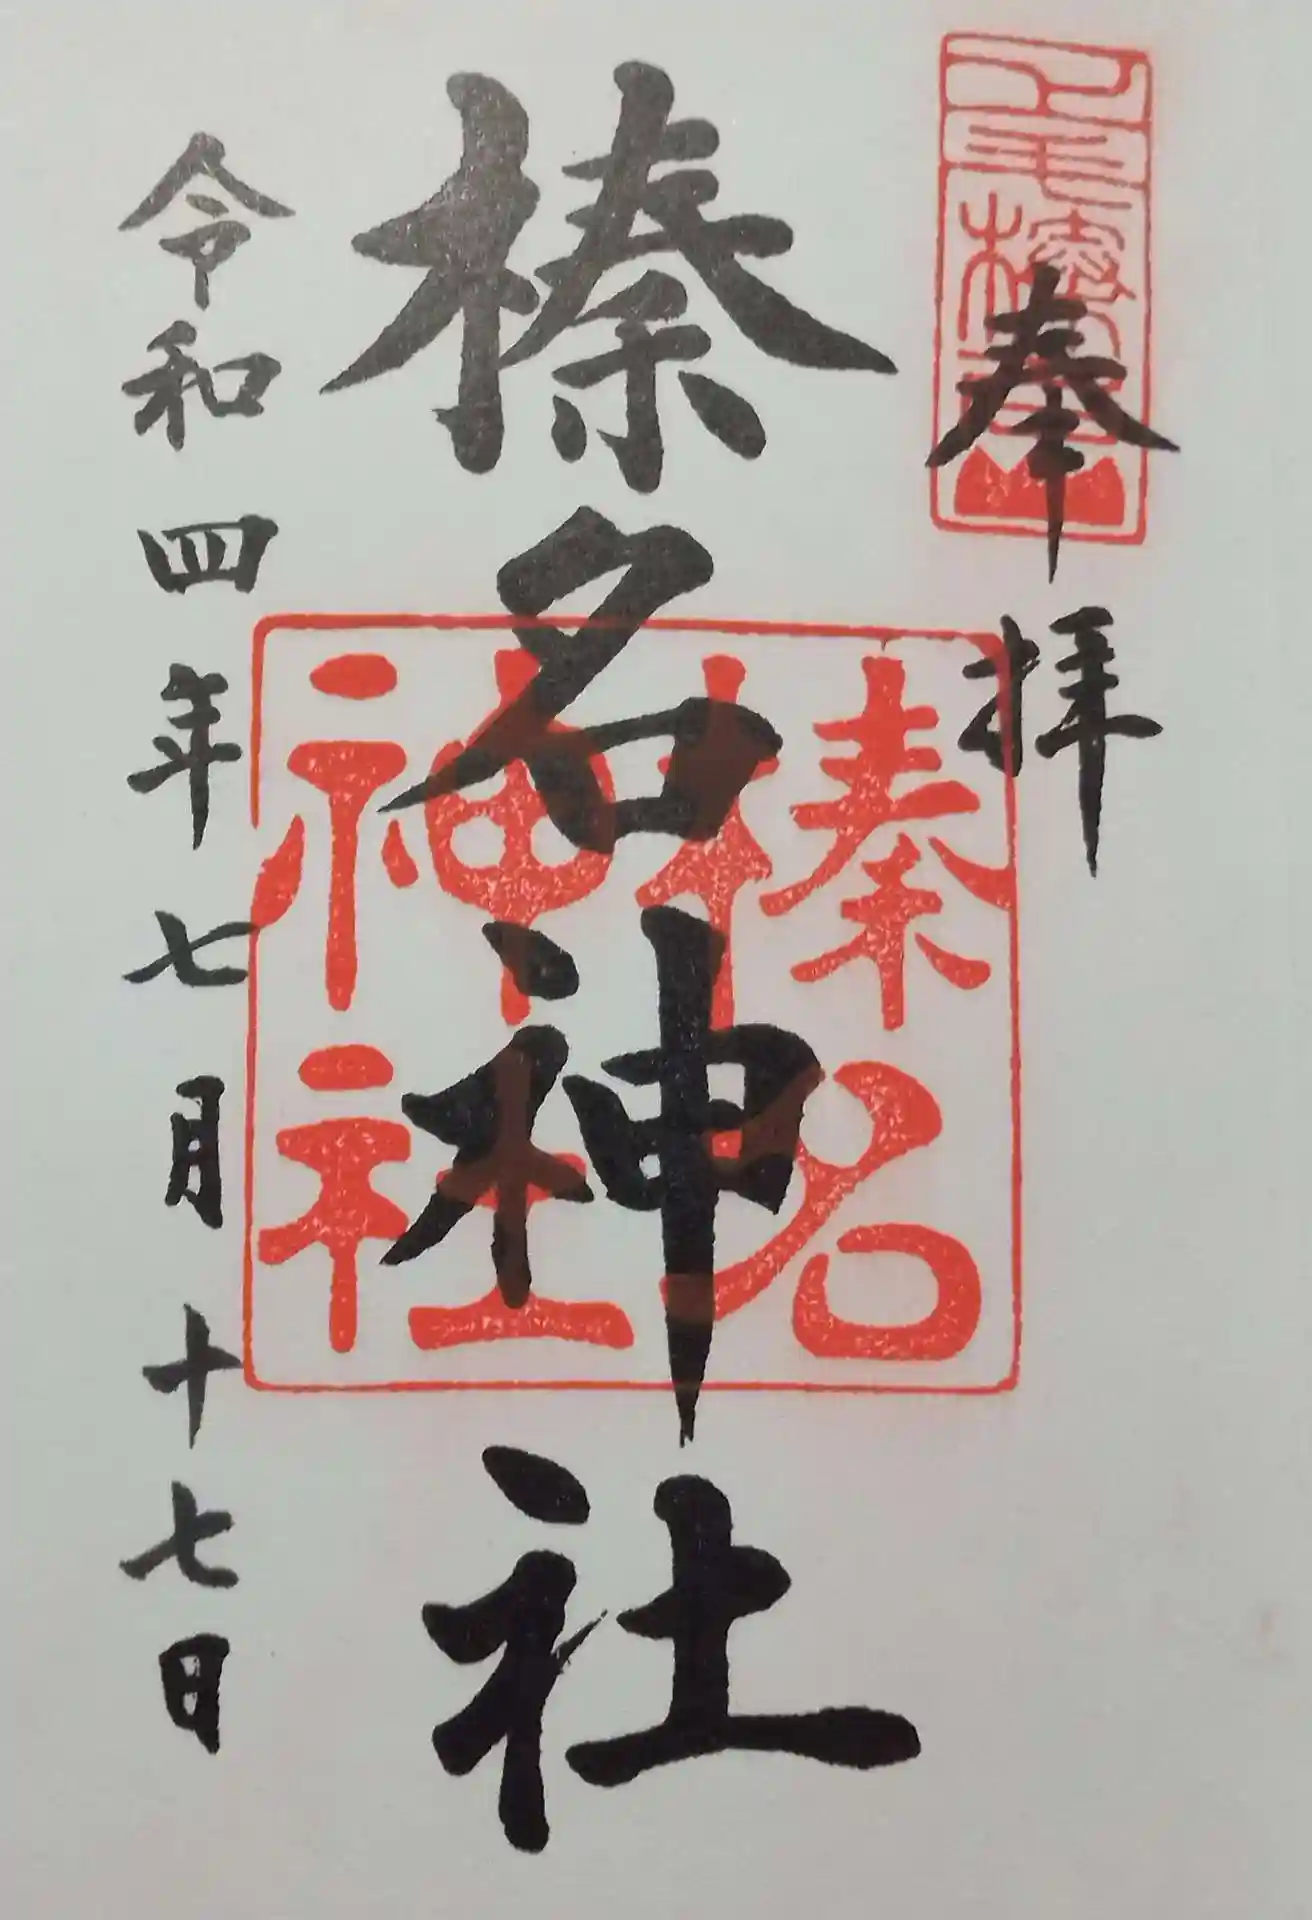 奉拝
榛名神社
榛名
神社
令和四年七月十七日